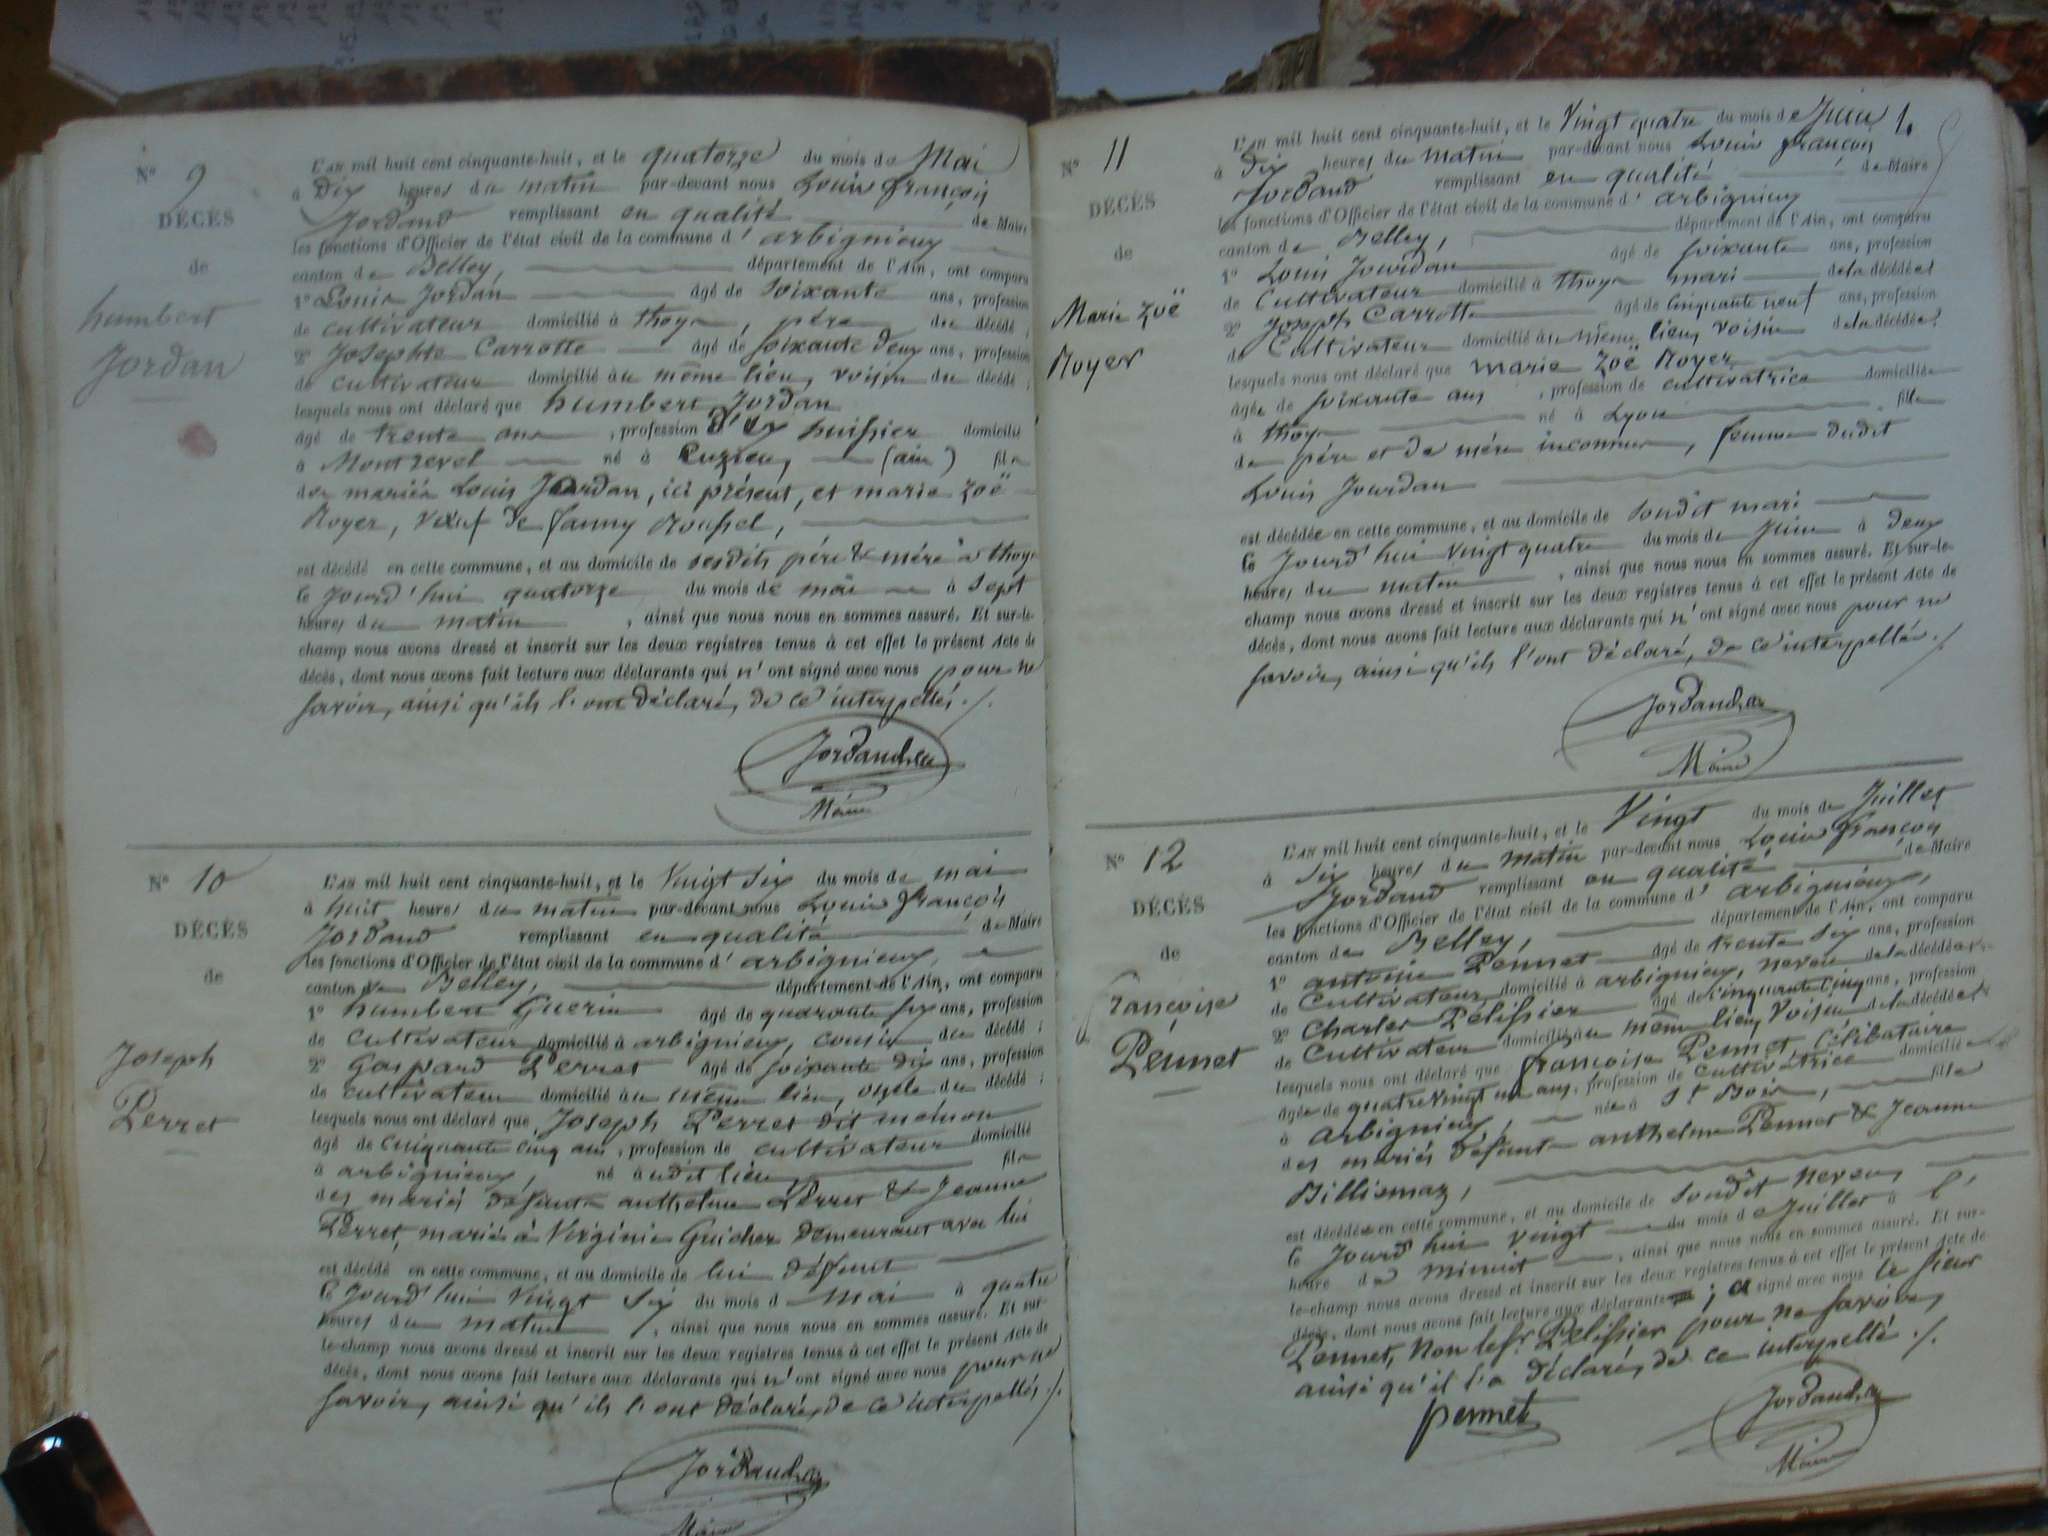 N° 9
DÉCÈS
de
humbert
Jordan
L'AN mil huit cent cinquante-huit, et le quatorze du mois de Mai
à Dix heures du matin par-devant nous Louis françois
Jordand remplissant en qualité de Maire
les fonctions d'Officier de l'état civil de la commune d'arbignieux
canton de Belley, département de l'Ain, ont comparu
1° Louis Jordan âgé de Soixante ans, profession
de cultivateur domicilié à thoys, père du décédé;
2° Josephte Carrotte âgé de soixante deux ans, profession
de cultivateur domicilié au même lieu, voisin du décédé;
lesquels nous ont déclaré que humbert Jordan
âgé de trente ans, profession d'Ex huissier domicilié
à Montrevel né à Cuzieu, (ain) fils
des mariés Louis Jordan, ici présent, et marie Zoë
Royer, veuf de fanny Roussel,
est décédé en cette commune, et au domicile de sesdits père & mère à thoys
le jourd'hui quatorze du mois de mai à Sept
heures du matin, ainsi que nous nous en sommes assuré. Et sur-le-
champ nous avons dressé et inscrit sur les deux registres tenus à cet effet le présent Acte de
décès, dont nous avons fait lecture aux déclarants qui n'ont signé avec nous pour ne
savoir, ainsi qu'ils l'ont déclaré, de ce interpellés ./.
Jordand
Maire
N° 10
DÉCÈS
de
Joseph
Perret
L'AN mil huit cent cinquante-huit, et le Vingt Six du mois de mai
à huit heures du matin par-devant nous Louis François
Jordand remplissant en qualité de Maire
les fonctions d'Officier de l'état civil de la commune d'arbignieux,
canton de Belley, département de l'Ain, ont comparu
1° humbert Guerin âgé de quarante six ans, profession
de cultivateur domicilié à arbignieux, cousin du décédé;
2° Gaspard Perret âgé de soixante dix ans, profession
de cultivateur domicilié au même lieu, oncle du décédé;
lesquels nous ont déclaré que Joseph Perret dit menon
âgé de cinquante cinq ans, profession de cultivateur domicilié
à arbignieux, né audit lieu, fils
des mariés défunts anthelme Perret & Jeanne
Perret, mariés à Virginie Guicher demeurant avec lui
est décédé en cette commune, et au domicile de lui défunt
le jourd'hui Vingt Six du mois d mai à quatre
heures du matin, ainsi que nous nous en sommes assuré. Et sur-
le-champ nous avons dressé et inscrit sur les deux registres tenus à cet effet le présent Acte de
décès, dont nous avons fait lecture aux déclarants qui n'ont signé avec nous pour ne
savoir, ainsi qu'ils l'ont déclaré, de ce interpellés ./.
Jordand
Maire
N° 11
DÉCÈS
de
Marie Zoë
Royer
L'AN mil huit cent cinquante-huit, et le Vingt quatre du mois de Juin
à Dix heures du matin par-devant nous Louis françois
Jordand remplissant en qualité de Maire
les fonctions d'Officier de l'état civil de la commune d'arbignieux
canton de Belley, département de l'Ain, ont comparu
1° Louis Jourdan âgé de soixante ans, profession
de Cultivateur domicilié à thoys mari de la décédée;
2° Joseph Carrotte âgé de cinquante neuf ans, profession
de Cultivateur domicilié au même lieu, voisin de la décédée;
lesquels nous ont déclaré que marie Zoë Royer
âgée de soixante ans, profession de cultivatrice domiciliée
à thoys né à Lyon fille
de père et de mère inconnus, femme dudit
Louis Jourdan
est décédée en cette commune, et au domicile de sondit mari
le Jourd'hui vingt quatre du mois de Juin à deux
heures du matin, ainsi que nous nous en sommes assuré. Et sur-le-
champ nous avons dressé et inscrit sur les deux registres tenus à cet effet le présent Acte de
décès, dont nous avons fait lecture aux déclarants qui n'ont signé avec nous pour ne
savoir, ainsi qu'ils l'ont déclaré, de ce interpellés ./.
Jordand
Maire
N° 12
DÉCÈS
de
françoise
Pennet
L'AN mil huit cent cinquante-huit, et le Vingt du mois de Juillet
à Six heures du matin par-devant nous Louis françois
Jordand remplissant en qualité de Maire
les fonctions d'Officier de l'état civil de la commune d'arbignieux,
canton de Belley, département de l'Ain, ont comparu
1° antoine Pennet âgé de trente six ans, profession
de Cultivateur domicilié à arbignieux, neveu de la décédée;
2° Charles Pelissier âgé de cinquante cinq ans, profession
de Cultivateur domicilié au même lieu, Voisin de la décédée;
lesquels nous ont déclaré que françoise Pennet, célibataire
âgée de quatre vingt un ans, profession de cultivatrice domiciliée
à arbignieux, née à St Bois, fille
des mariés défunts anthelme Pennet & Jeanne
Billiemaz,
est décédée en cette commune, et au domicile de sondit neveu,
le jourd'hui vingt du mois de Juillet à l'
heure de minuit, ainsi que nous nous en sommes assuré. Et sur-
le-champ nous avons dressé et inscrit sur les deux registres tenus à cet effet le présent Acte de
décès, dont nous avons fait lecture aux déclarants; a signé avec nous le sieur
Pennet, Non le sr Pelissier pour ne savoir,
ainsi qu'il l'a déclaré, de ce interpellé ./.
pennet
Jordand
Maire